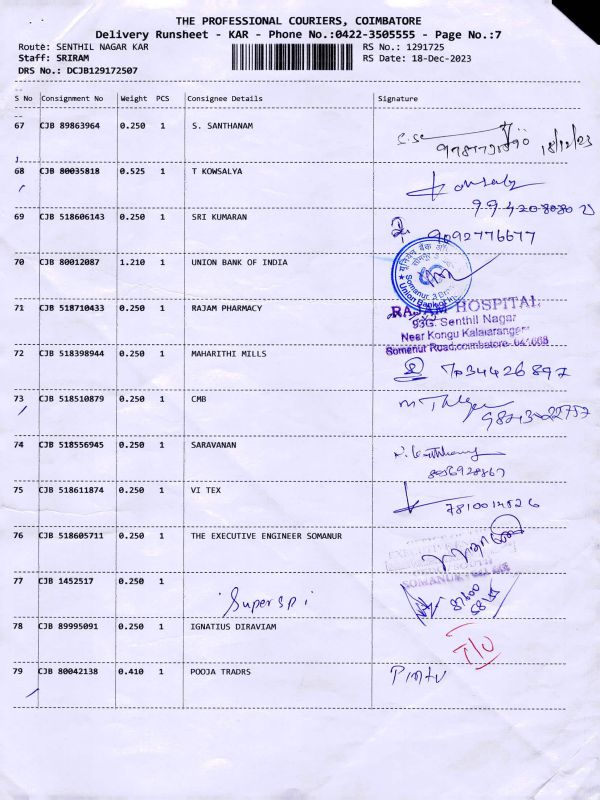 THE PROFESSIONAL COURIERS, COIMBATORE
Delivery Runsheet - KAR - Phone No.:0422-3505555 - Page No.:7
Route: SENTHIL NAGAR KAR RS No.: 1291725
Staff: SRIRAM RS Date: 18-Dec-2023
DRS No.: DCJB129172507
S No Consignment No Weight PCS Consignee Details Signature
67 CJB 89863964 0.250 1 S. SANTHANAM
18/12/23
68 CJB 80035818 0.525 1 T KOWSALYA
69 CJB 518606143 0.250 1 SRI KUMARAN
9092776677
70 CJB 80012087 1.210 1 UNION BANK OF INDIA
71 CJB 518710433 0.250 1 RAJAM PHARMACY
RAJAM HOSPITAL
93G. Senthil Nagar
Near Kongu Kalaiarangam
Somanur Road.coimbatore- 641668
72 CJB 518398944 0.250 1 MAHARITHI MILLS
7034426897
73 CJB 518510879 0.250 1 CMB
74 CJB 518556945 0.250 1 SARAVANAN
8056928867
75 CJB 518611874 0.250 1 VI TEX
7810014526
76 CJB 518605711 0.250 1 THE EXECUTIVE ENGINEER SOMANUR
77 CJB 1452517 0.250 1
Superspi
78 CJB 89995091 0.250 1 IGNATIUS DIRAVIAM
79 CJB 80042138 0.410 1 POOJA TRADRS